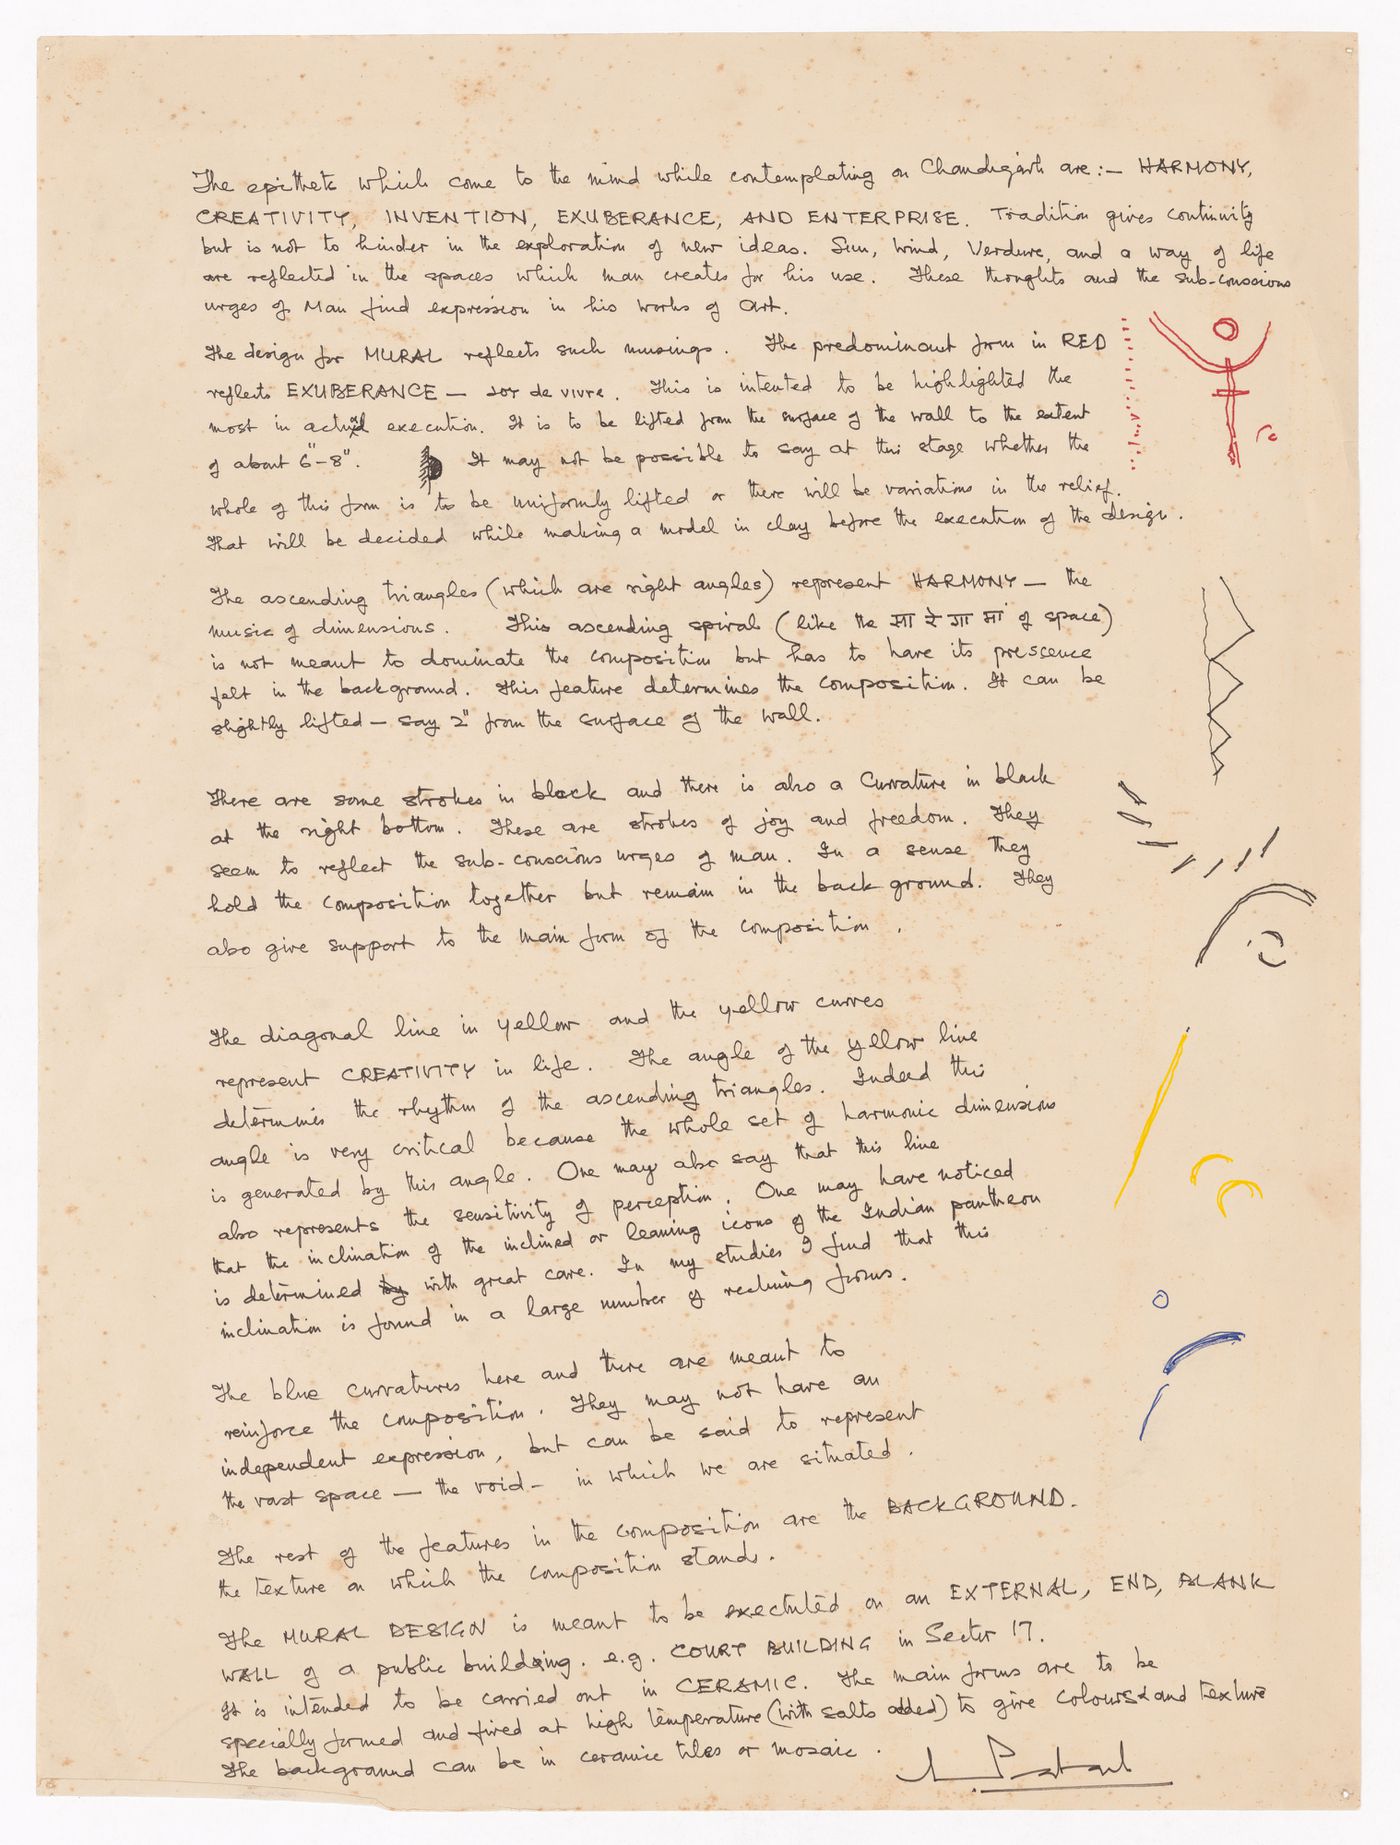 The epithets which come to the mind while contemplating on Chandigarh are:— HARMONY,
CREATIVITY, INVENTION, EXUBERANCE, AND ENTERPRISE. Tradition gives continuity
but is not to hinder in the exploration of new ideas. Sun, Wind, Verdure, and a way of life
are reflected in the spaces which man creates for his use. These thoughts and the sub-conscious
urges of Man find expression in his works of Art.
The design for MURAL reflects such musings. The predominant form in RED
reflects EXUBERANCE — Joy de vivre. This is intented to be highlighted the
most in actual execution. It is to be lifted from the surface of the wall to the extent
of about 6"-8". It may not be possible to say at this stage whether the
whole of this form is to be uniformly lifted or there will be variations in the relief.
That will be decided while making a model in clay before the execution of the design.
The ascending triangles (which are right angles) represent HARMONY — the
music of dimensions. This ascending spiral (like the सा रे गा मा of space)
is not meant to dominate the composition but has to have its pressence
felt in the background. This feature determines the composition. It can be
slightly lifted — say 2" from the surface of the wall.
There are some strokes in black and there is also a Curvature in black
at the right bottom. These are strokes of joy and freedom. They
seem to reflect the sub-conscious urges of man. In a sense they
hold the composition together but remain in the back ground. They
also give support to the main form of the composition.
The diagonal line in yellow and the yellow curves
represent CREATIVITY in life. The angle of the yellow line
determines the rhythm of the ascending triangles. Indeed this
angle is very critical because the whole set of harmonic dimensions
is generated by this angle. One may also say that this line
also represents the sensitivity of perception. One may have noticed
that the inclination of the inclined or leaning icons of the Indian pantheon
is determined by with great care. In my studies I find that this
inclination is found in a large number of reclining forms.
The blue curvatures here and there are meant to
reinforce the composition. They may not have an
independent expression, but can be said to represent
the vast space — the void — in which we are situated.
The rest of the features in the composition are the BACKGROUND.
the texture on which the composition stands.
The MURAL DESIGN is meant to be exectuted on an EXTERNAL, END, BLANK
WALL of a public building. e.g. COURT BUILDING in Sector 17.
It is intended to be carried out in CERAMIC. The main forms are to be
specially formed and fired at high temperature (with salts added) to give colours and texture
The background can be in ceramic tiles or mosaic.